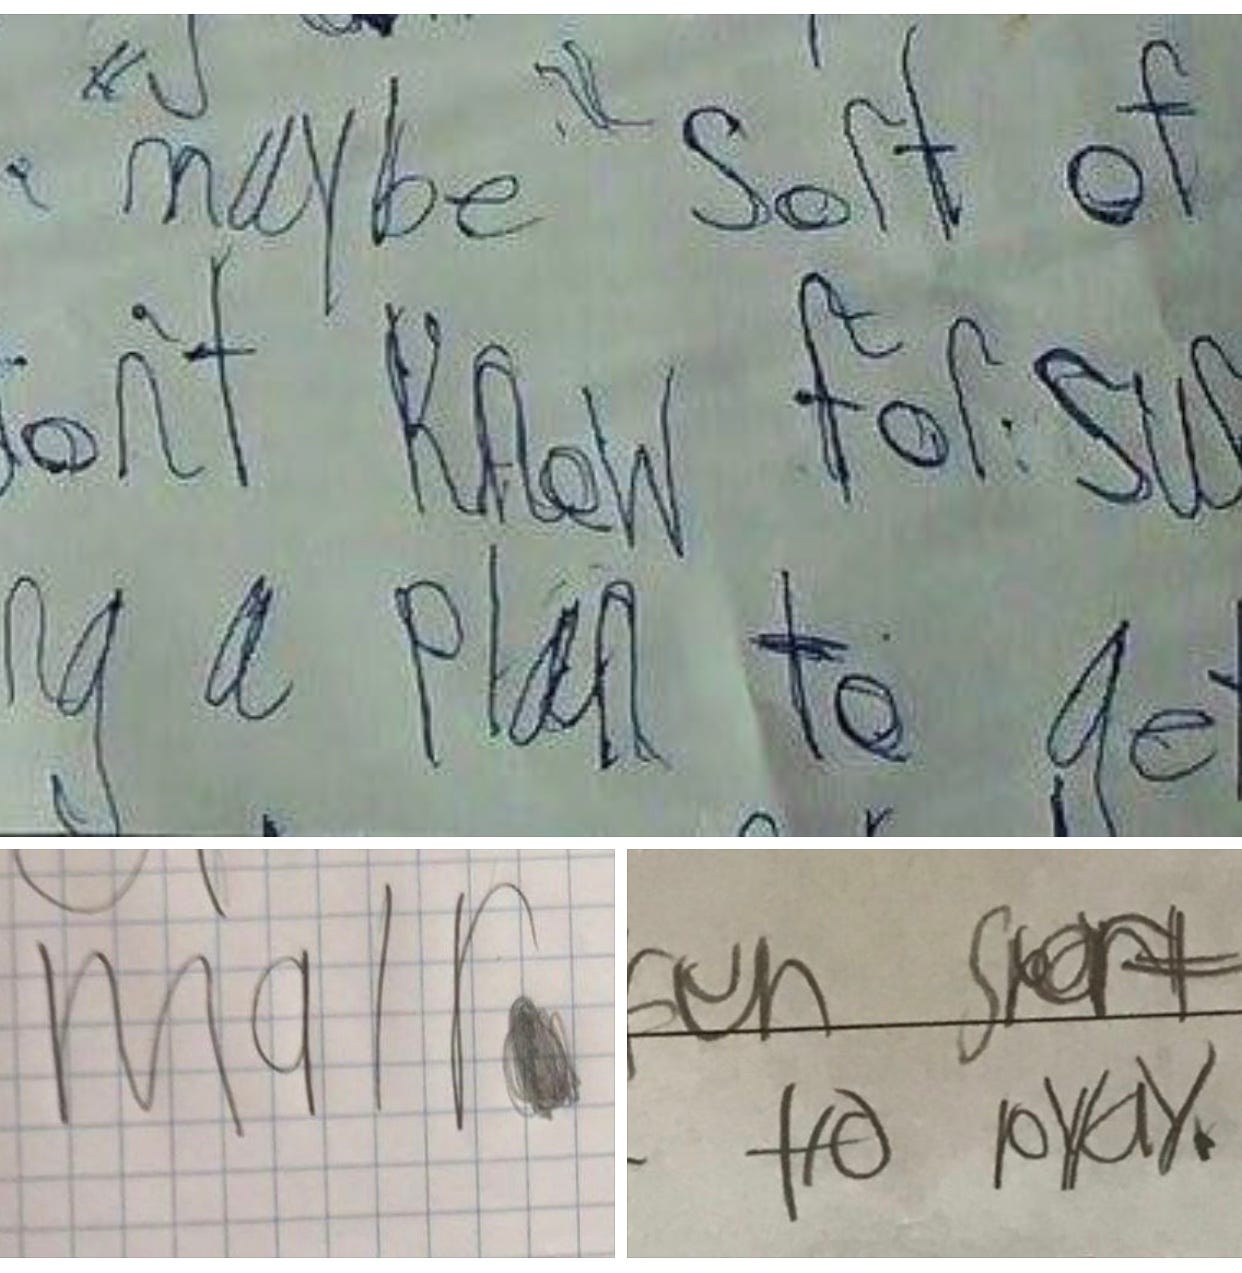 maybe" Sort of
don't know for sur
ng a plan to get
mall.
fun sport
to play.